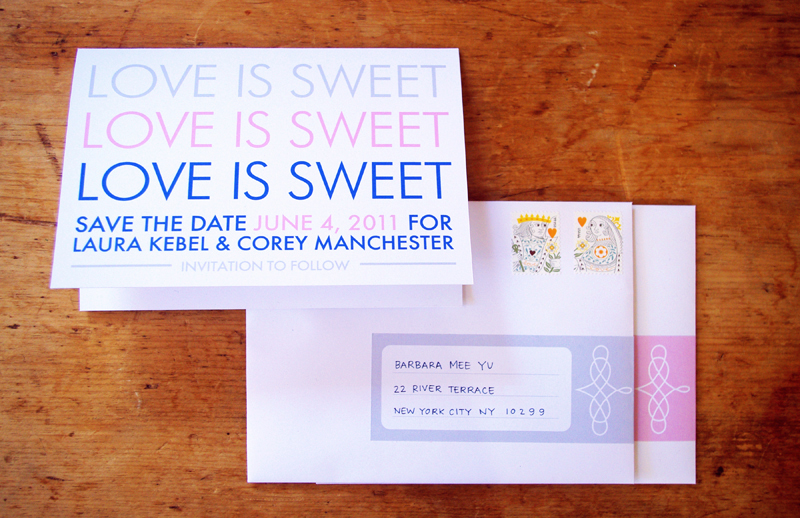 LOVE IS SWEET
LOVE IS SWEET
LOVE IS SWEET
SAVE THE DATE JUNE 4, 2011 FOR
LAURA KEBEL & COREY MANCHESTER
INVITATION TO FOLLOW
BARBARA MEE YU
22 RIVER TERRACE
NEW YORK CITY NY 10299